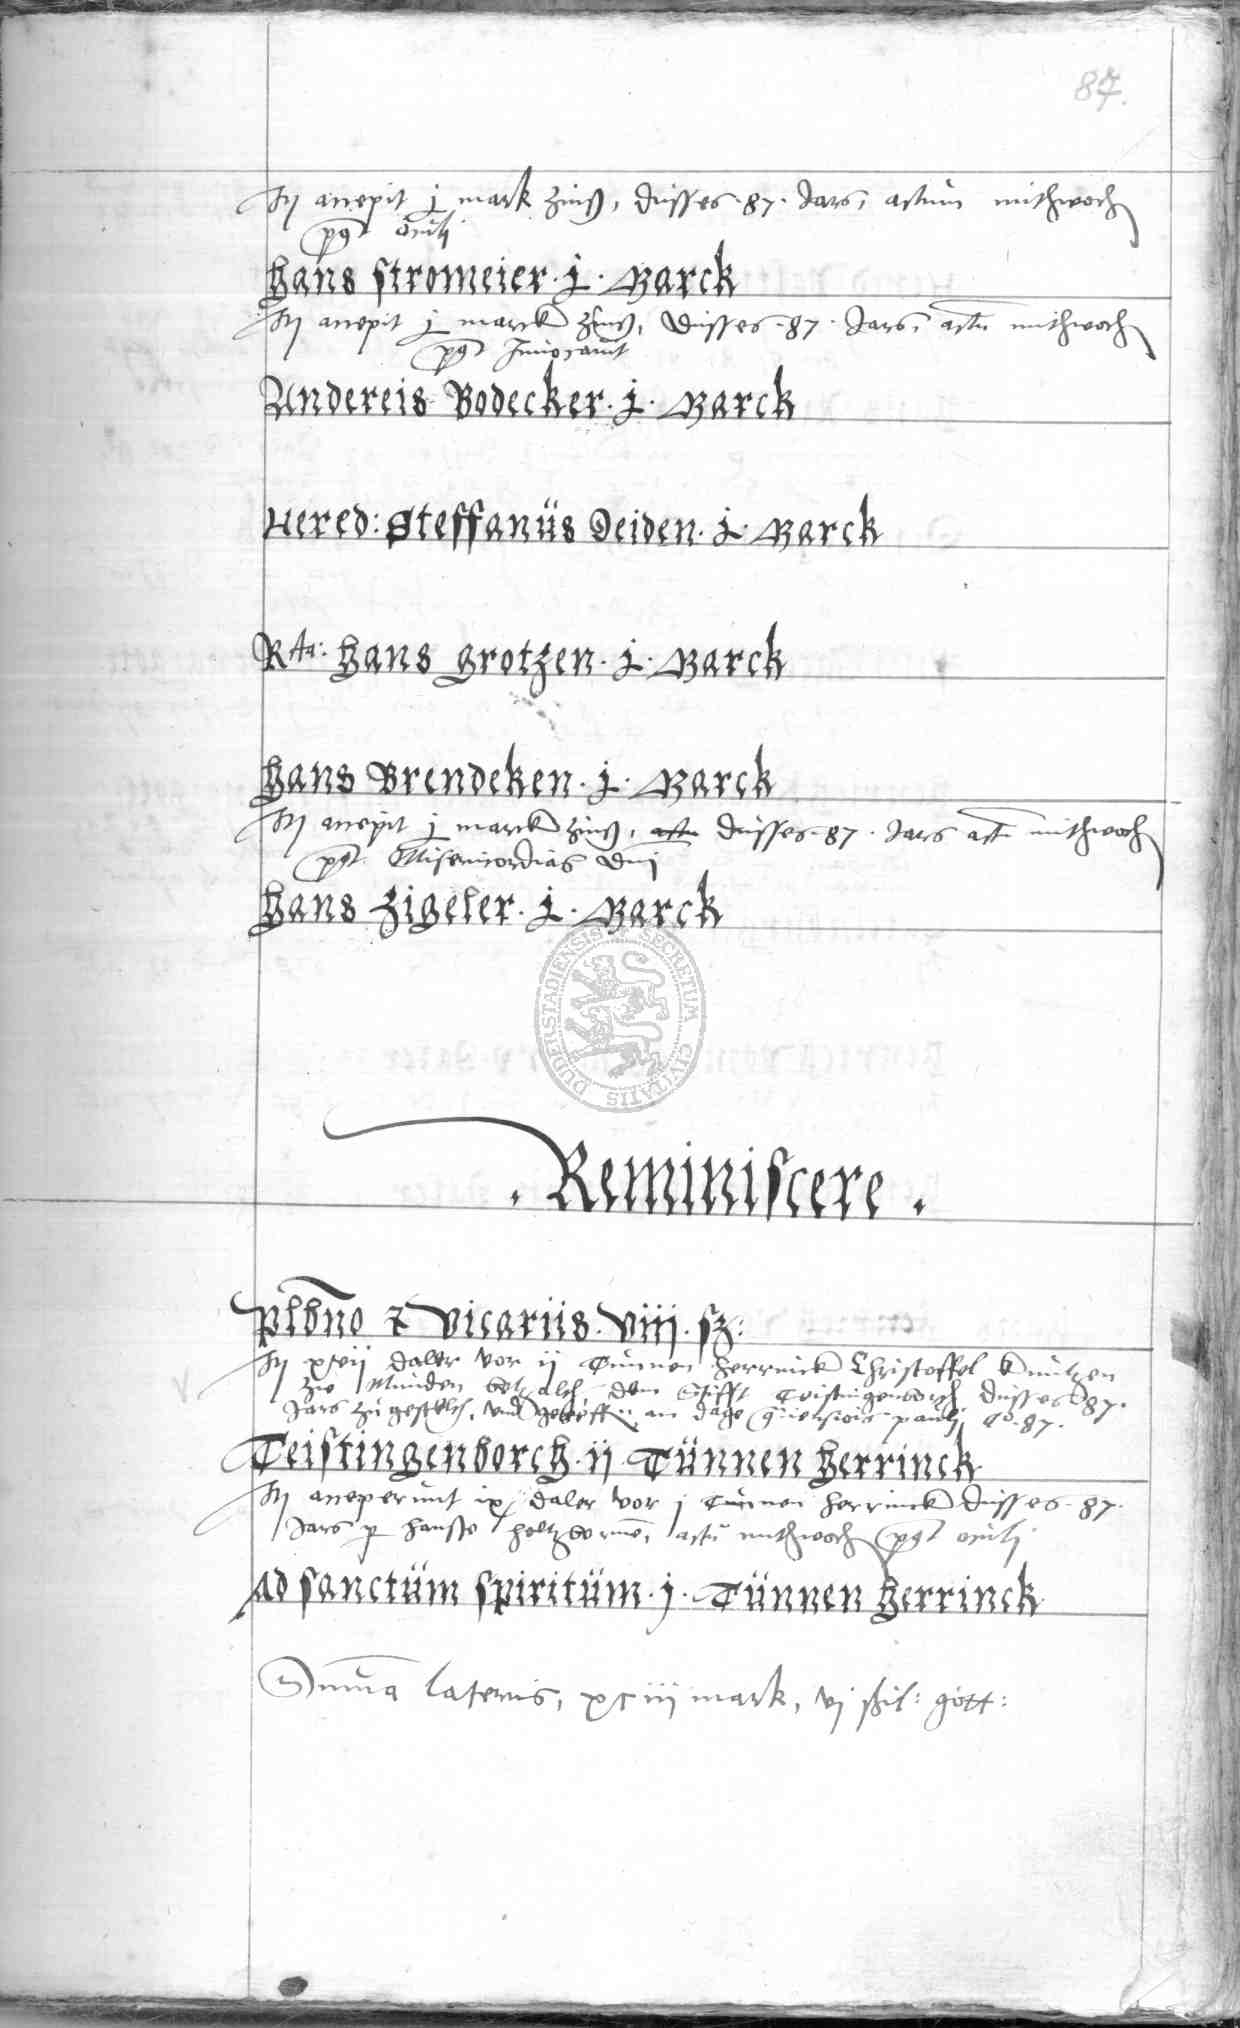 87.
Itm accepit j mark zinß, dusses 87. Jars, actum mithwoch
post Oculi
Hans Stromeier. j. Marck
Itm accepit j marck zinß, dusses 87. Jars, actu mithwoch
post Invocavit
Andereis Bodecker. j. Marck
Hered: Steffanüs Deiden. j. Marck
Hans Grotzen. j. Marck
Hans Brendeken. j. Marck
Itm accepit j marck zinß, dusses 87. Jars actu mithwoch
post Misericordias Dni
Hans Zigeler. j. Marck
SECRETUM CIVITATIS DUDERSTADIENSIS
. Reminiscere .
Plbno & Vicariis. viii. sz:
Itm daler vor ii Tunnen herrinck Christoffel
zw Munden dem Stifft Teistingenborch dusses 87.
Jars zugestelt, und am dage pauli Ao. 87.
Teistingenborch. ij. Tünnen Herrinck
Itm acceperunt ix daler vor j Tunnen herrinck dusses 87.
Jars p hansse actu mithwoch post oculi
Ad Sanctüm Spiritüm. j. Tünnen Herrinck
Suma lateris, xciii mark, vj schil: gött: